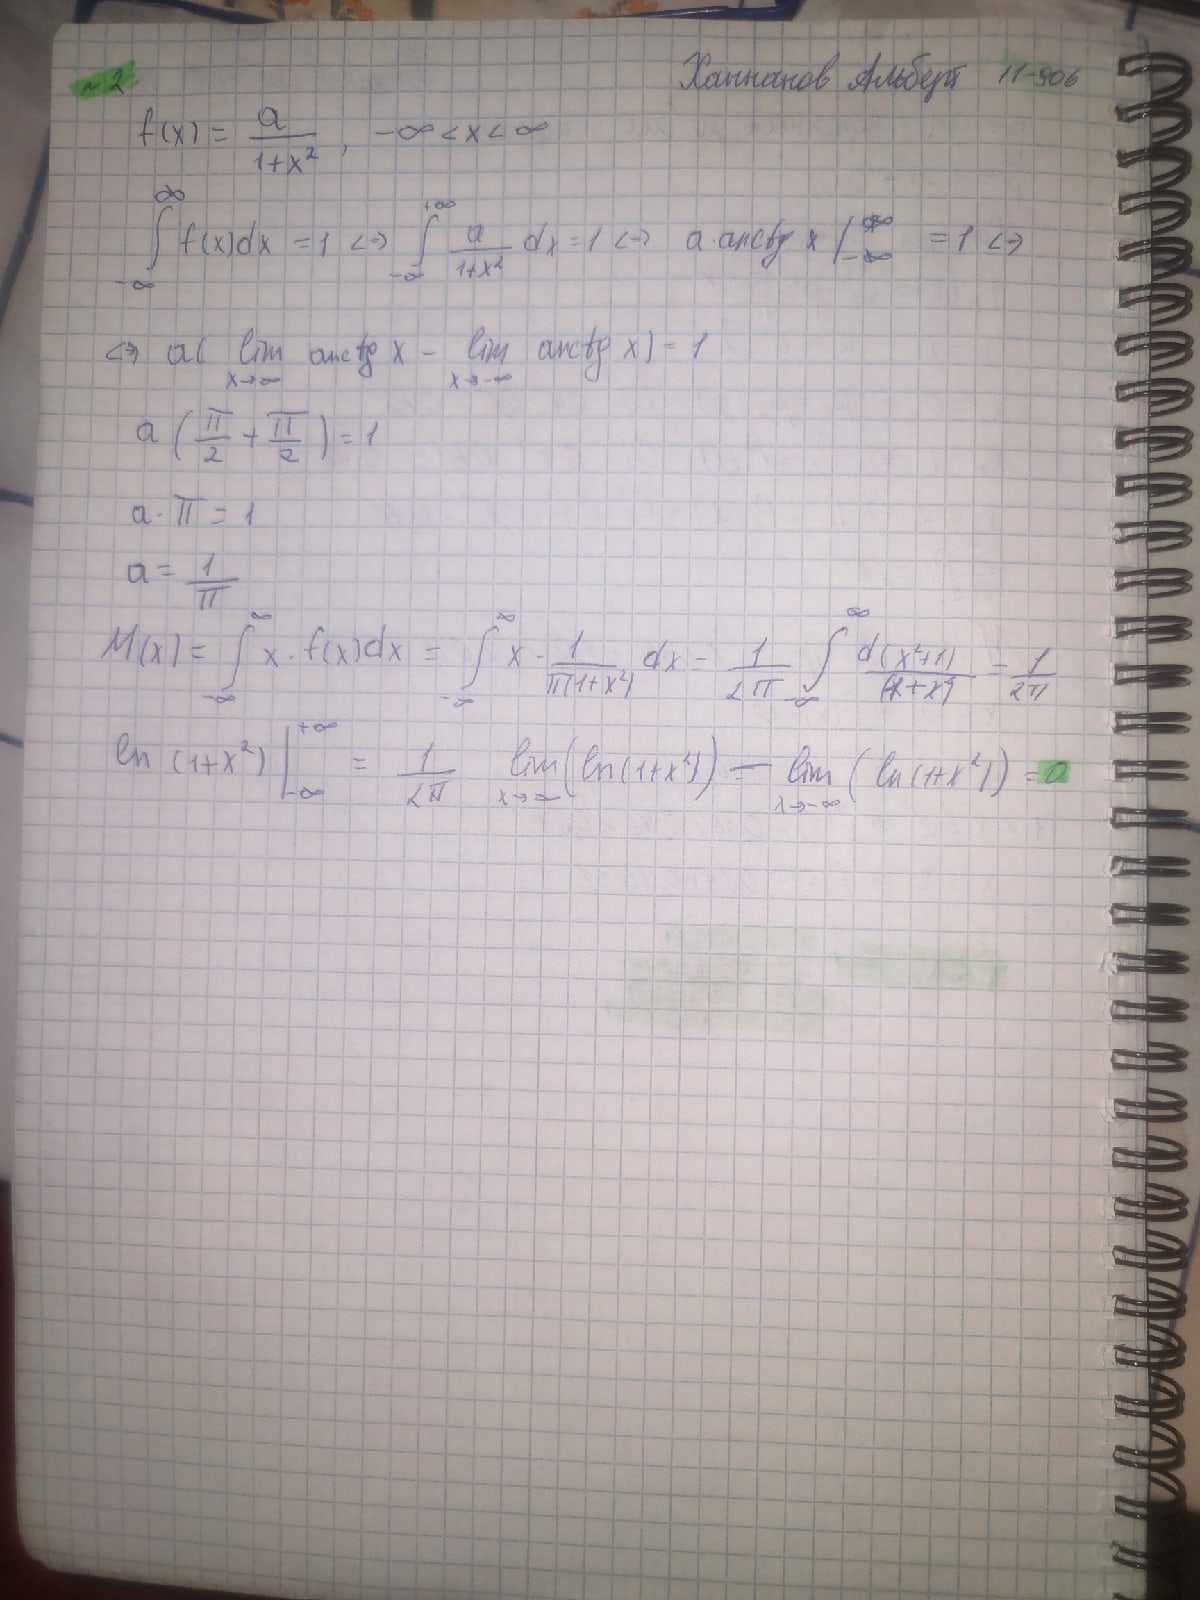 №2 Ханнанов Альберт 11-906
f(x) = a/(1+x²), -∞ < x < ∞
∫_{-∞}^{∞} f(x)dx = 1 <=> ∫_{-∞}^{+∞} a/(1+x²) dx = 1 <=> a·arctg x |_{-∞}^{+∞} = 1 <=>
<=> a( lim_{x→∞} arctg x - lim_{x→-∞} arctg x) = 1
a (π/2 + π/2) = 1
a·π = 1
a = 1/π
M(x) = ∫_{-∞}^{∞} x·f(x)dx = ∫_{-∞}^{∞} x·1/(π(1+x²)) dx = 1/(2π) ∫_{-∞}^{∞} d(x²+1)/ = 1/(2π)
ln (1+x²) |_{-∞}^{+∞} = 1/(2π) lim_{x→∞} (ln(1+x²)) - lim_{x→-∞} (ln(1+x²)) = 0